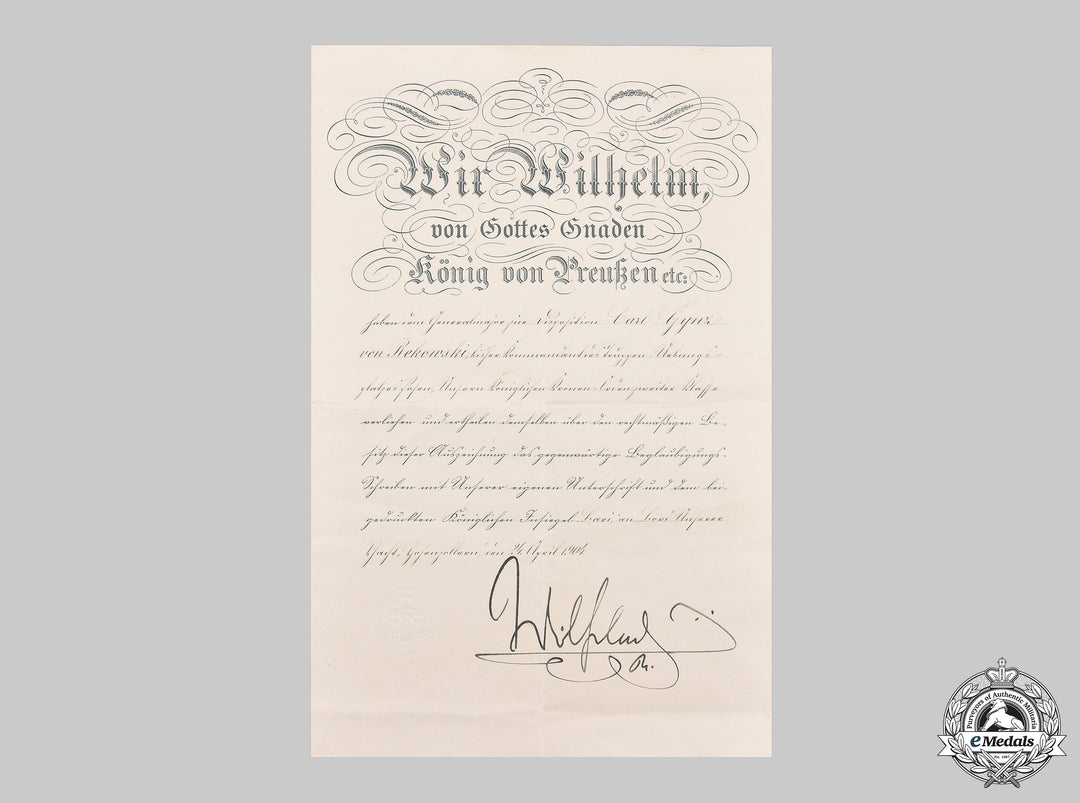 Wir Wilhelm,
von Gottes Gnaden
König von Preußen etc:
haben dem Generalmajor zur Disposition Carl
von Rekowski, bisher Kommandant des Truppen-Uebungs-
platzes Posen, Unsern Königlichen Kronen-Orden zweiter Klasse
verliehen und ertheilen demselben über den rechtmäßigen Be-
sitz dieser Auszeichnung das gegenwärtige Beglaubigungs-
Schreiben mit Unserer eigenen Unterschrift und dem bei-
gedruckten Königlichen Insiegel. Bari, an Bord Unserer
Yacht „Hohenzollern", den April 1904.
Wilhelm
R.
Purveyors of Authentic Militaria
eMedals